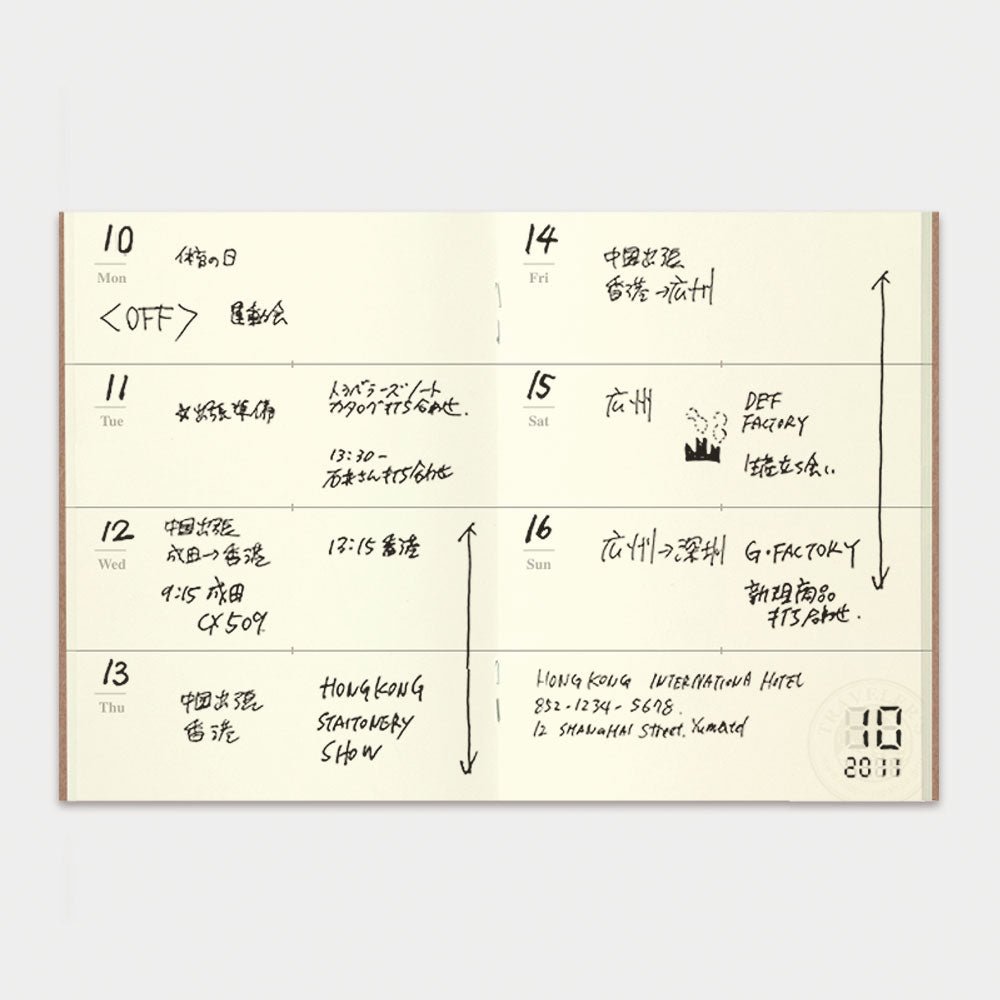 10
Mon
体育の日
<OFF> 運動会
11
Tue
☆出張準備
トラベラーズノート
カタログ打ち合わせ.
13:30-
石井さん打ち合わせ
12
Wed
中国出張
成田→香港
9:15 成田
CX509
13:15 香港
13
Thu
中国出張
香港
HONG KONG
STAITONERY
SHOW
14
Fri
中国出張
香港→広州
15
Sat
広州
DEF
FACTORY
生産立ち会い
16
Sun
広州→深圳
G・FACTORY
新規商品
打ち合わせ.
HONG KONG INTERNATIONA HOTEL
852-1234-5678.
12 SHANGHAI Street, Yumatd
10
2011